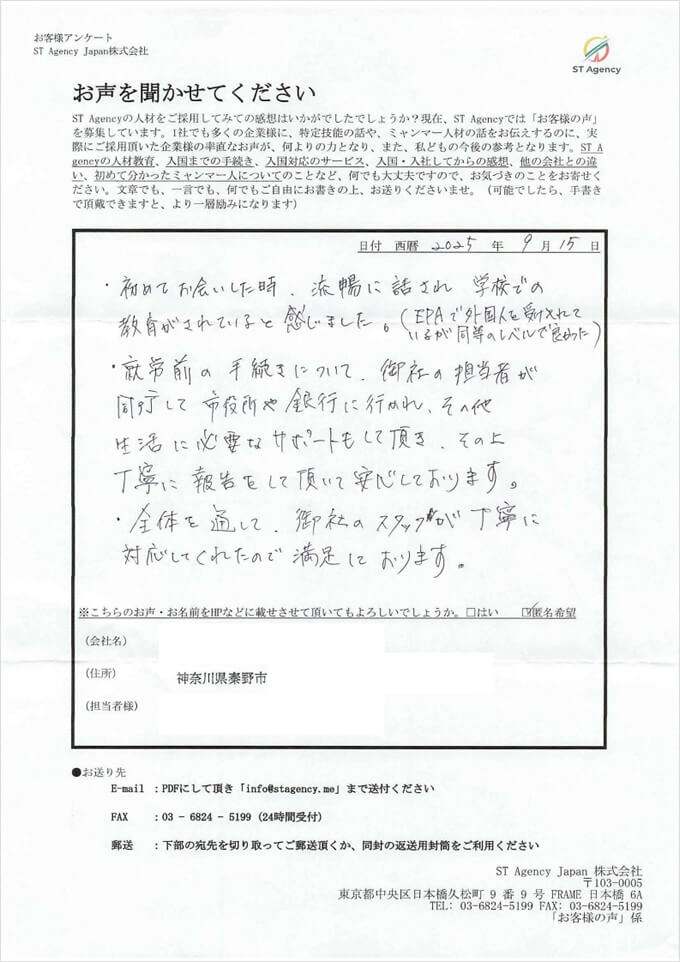 お客様アンケート
ST Agency Japan株式会社
ST Agency
お声を聞かせてください
ST Agencyの人材をご採用してみての感想はいかがでしたでしょうか?現在、ST Agencyでは「お客様の声」
を募集しています。1社でも多くの企業様に、特定技能の話や、ミャンマー人材の話をお伝えするのに、実
際にご採用頂いた企業様の率直なお声が、何よりの力となり、また、私どもの今後の参考となります。ST A
gencyの人材教育、入国までの手続き、入国対応のサービス、入国・入社してからの感想、他の会社との違
い、初めて分かったミャンマー人についてのことなど、何でも大丈夫ですので、お気づきのことをお寄せく
ださい。文章でも、一言でも、何でもご自由にお書きの上、お送りくださいませ。(可能でしたら、手書き
で頂戴できますと、より一層励みになります)
日付 西暦 2025 年 9 月 15 日
・初めてお会いした時、流暢に話され 学校での
教育がされていると感じました。(EPAで外国人を受け入れて
いるが同等のレベルで良かった)
・就労前の手続きについて、御社の担当者が
同行して市役所や銀行に行かれ、その他
生活に必要なサポートもして頂き、その上
丁寧に報告をして頂いて安心しております。
・全体を通して、御社のスタッフが丁寧に
対応してくれたので満足しております。
※こちらのお声・お名前をHPなどに載せさせて頂いてもよろしいでしょうか。□はい ☑匿名希望
(会社名)
(住所) 神奈川県秦野市
(担当者様)
●お送り先
E-mail :PDFにして頂き「info@stagency.me」まで送付ください
FAX :03 - 6824 - 5199(24時間受付)
郵送 :下部の宛先を切り取ってご郵送頂くか、同封の返送用封筒をご利用ください
ST Agency Japan 株式会社
〒103-0005
東京都中央区日本橋久松町 9 番 9 号 FRAME 日本橋 6A
TEL: 03-6824-5199 FAX: 03-6824-5199
「お客様の声」係